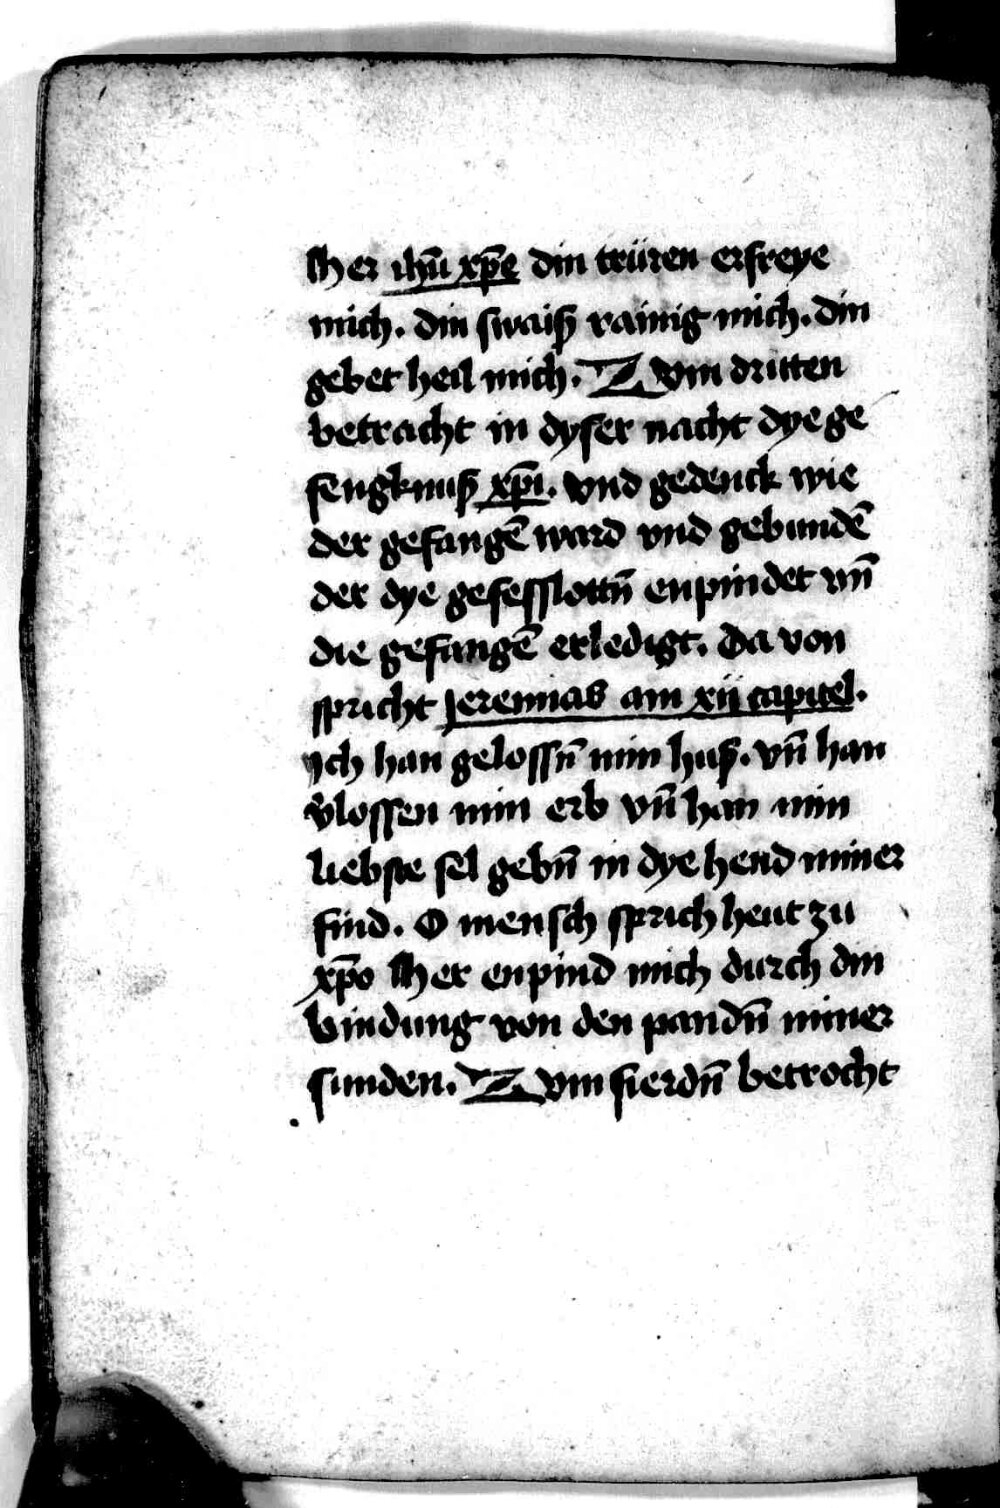 Her ihū xp̄e din trüren erfreye
mich. din swaiß rainig mich. din
gebet heil mich. Zvm dritten
betracht in dyser nacht dye ge
fengknuß xp̄i. vnd gedenck wie
der gefangē ward vnd gebundē
der dye gefesslottn̄ enpindet vn̄
die gefangē erledigt. Da von
spricht Jeremias am xij capitel.
Ich han gelossn̄ min huß. vn̄ han
v̄lossen min erb vn̄ han min
liebste sel gebn̄ in dye hend miner
find. O mensch sprich heut zu
xp̄o Her enpind mich durch din
bindung von den pandn̄ miner
sunden. Zvm fierdn̄ betrocht